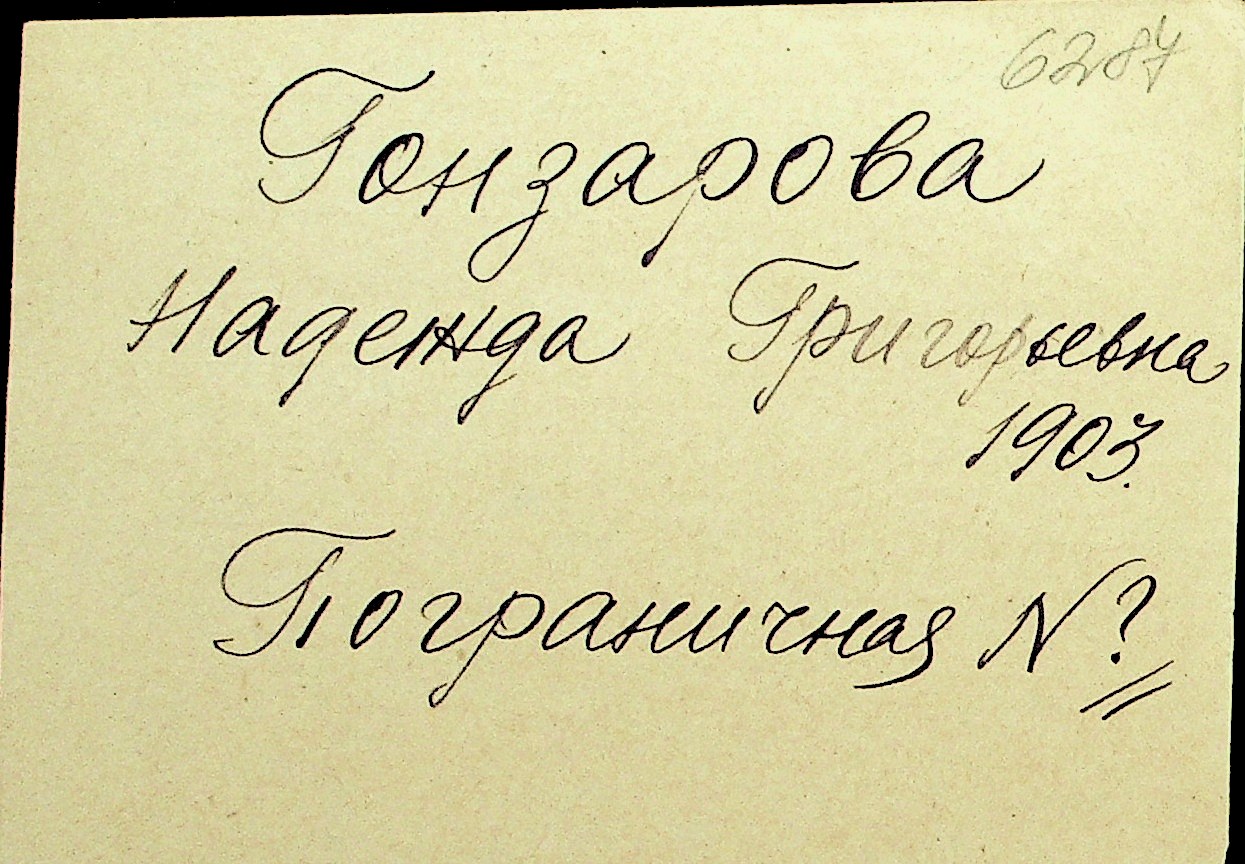 6287
Гонзарова
Надежда Григорьевна
1903.
Пограничная N?